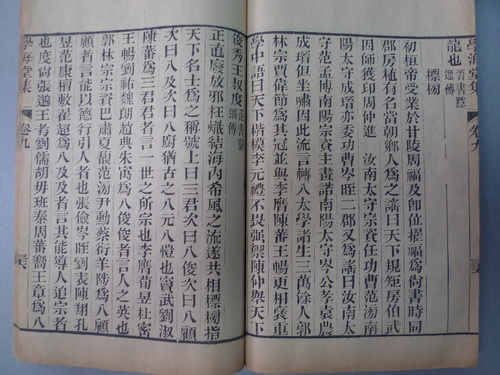 學海堂集 卷九
龍也
標榜
初桓帝受業於甘陵周福及卽位擢福爲尚書時同
郡房植有名當朝鄉人爲之謠曰天下規矩房伯武
因師獲印周仲進 汝南太守宗資任功曹范滂南
陽太守成瑨亦委功曹岑晊二郡又爲謠曰汝南太
守范孟博南陽宗資主畫諾南陽太守岑公孝宏農
成瑨但坐嘯因此流言轉入太學諸生三萬餘人郭
林宗賈偉節爲其冠並與李膺陳蕃王暢更相襃重
學中語曰天下楷模李元禮不畏强禦陳仲舉天下
俊秀王叔度
正直廢放邪枉熾結海內希風之流遂共相標榜指
天下名士爲之稱號上曰三君次曰八俊次曰八顧
次曰八及次曰八廚猶古之八元八愷也竇武劉淑
陳蕃爲三君君者言一世之所宗也李膺荀昱杜密
王暢劉祐魏朗趙典朱寓爲八俊俊者言人之英也
郭林宗宗慈巴肅夏馥范滂尹勳蔡衍羊陟爲八顧
顧者言能以德行引人者也張儉岑晊劉表陳翔孔
昱范康檀敷翟超爲八及及者言其能導人追宗者
也度尚張邈王考劉儒胡毋班秦周蕃嚮王章爲八
學海堂集 卷九